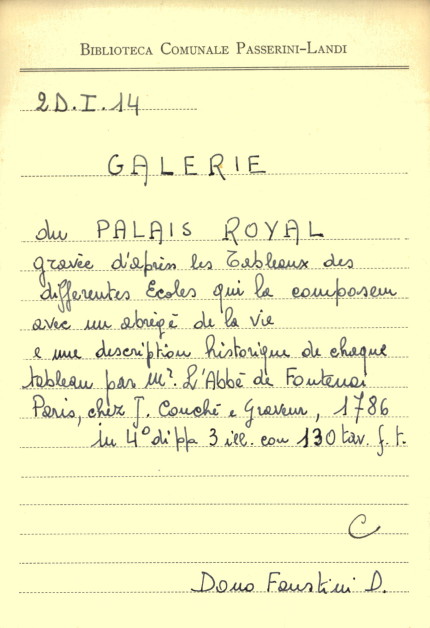 BIBLIOTECA COMUNALE PASSERINI-LANDI
2D.I.14
GALERIE
du PALAIS ROYAL
gravée d'après les Tableaux des
differentes Ecoles qui la composen
avec un abrégé de la vie
e une description historique de chaque
tableau par Mr. L'Abbé de Fontenai
Paris, chez J. Couché e Graveur, 1786
in 4° di pp 3 ill. con 130 tav. f. t.
C
Dono Faustini D.